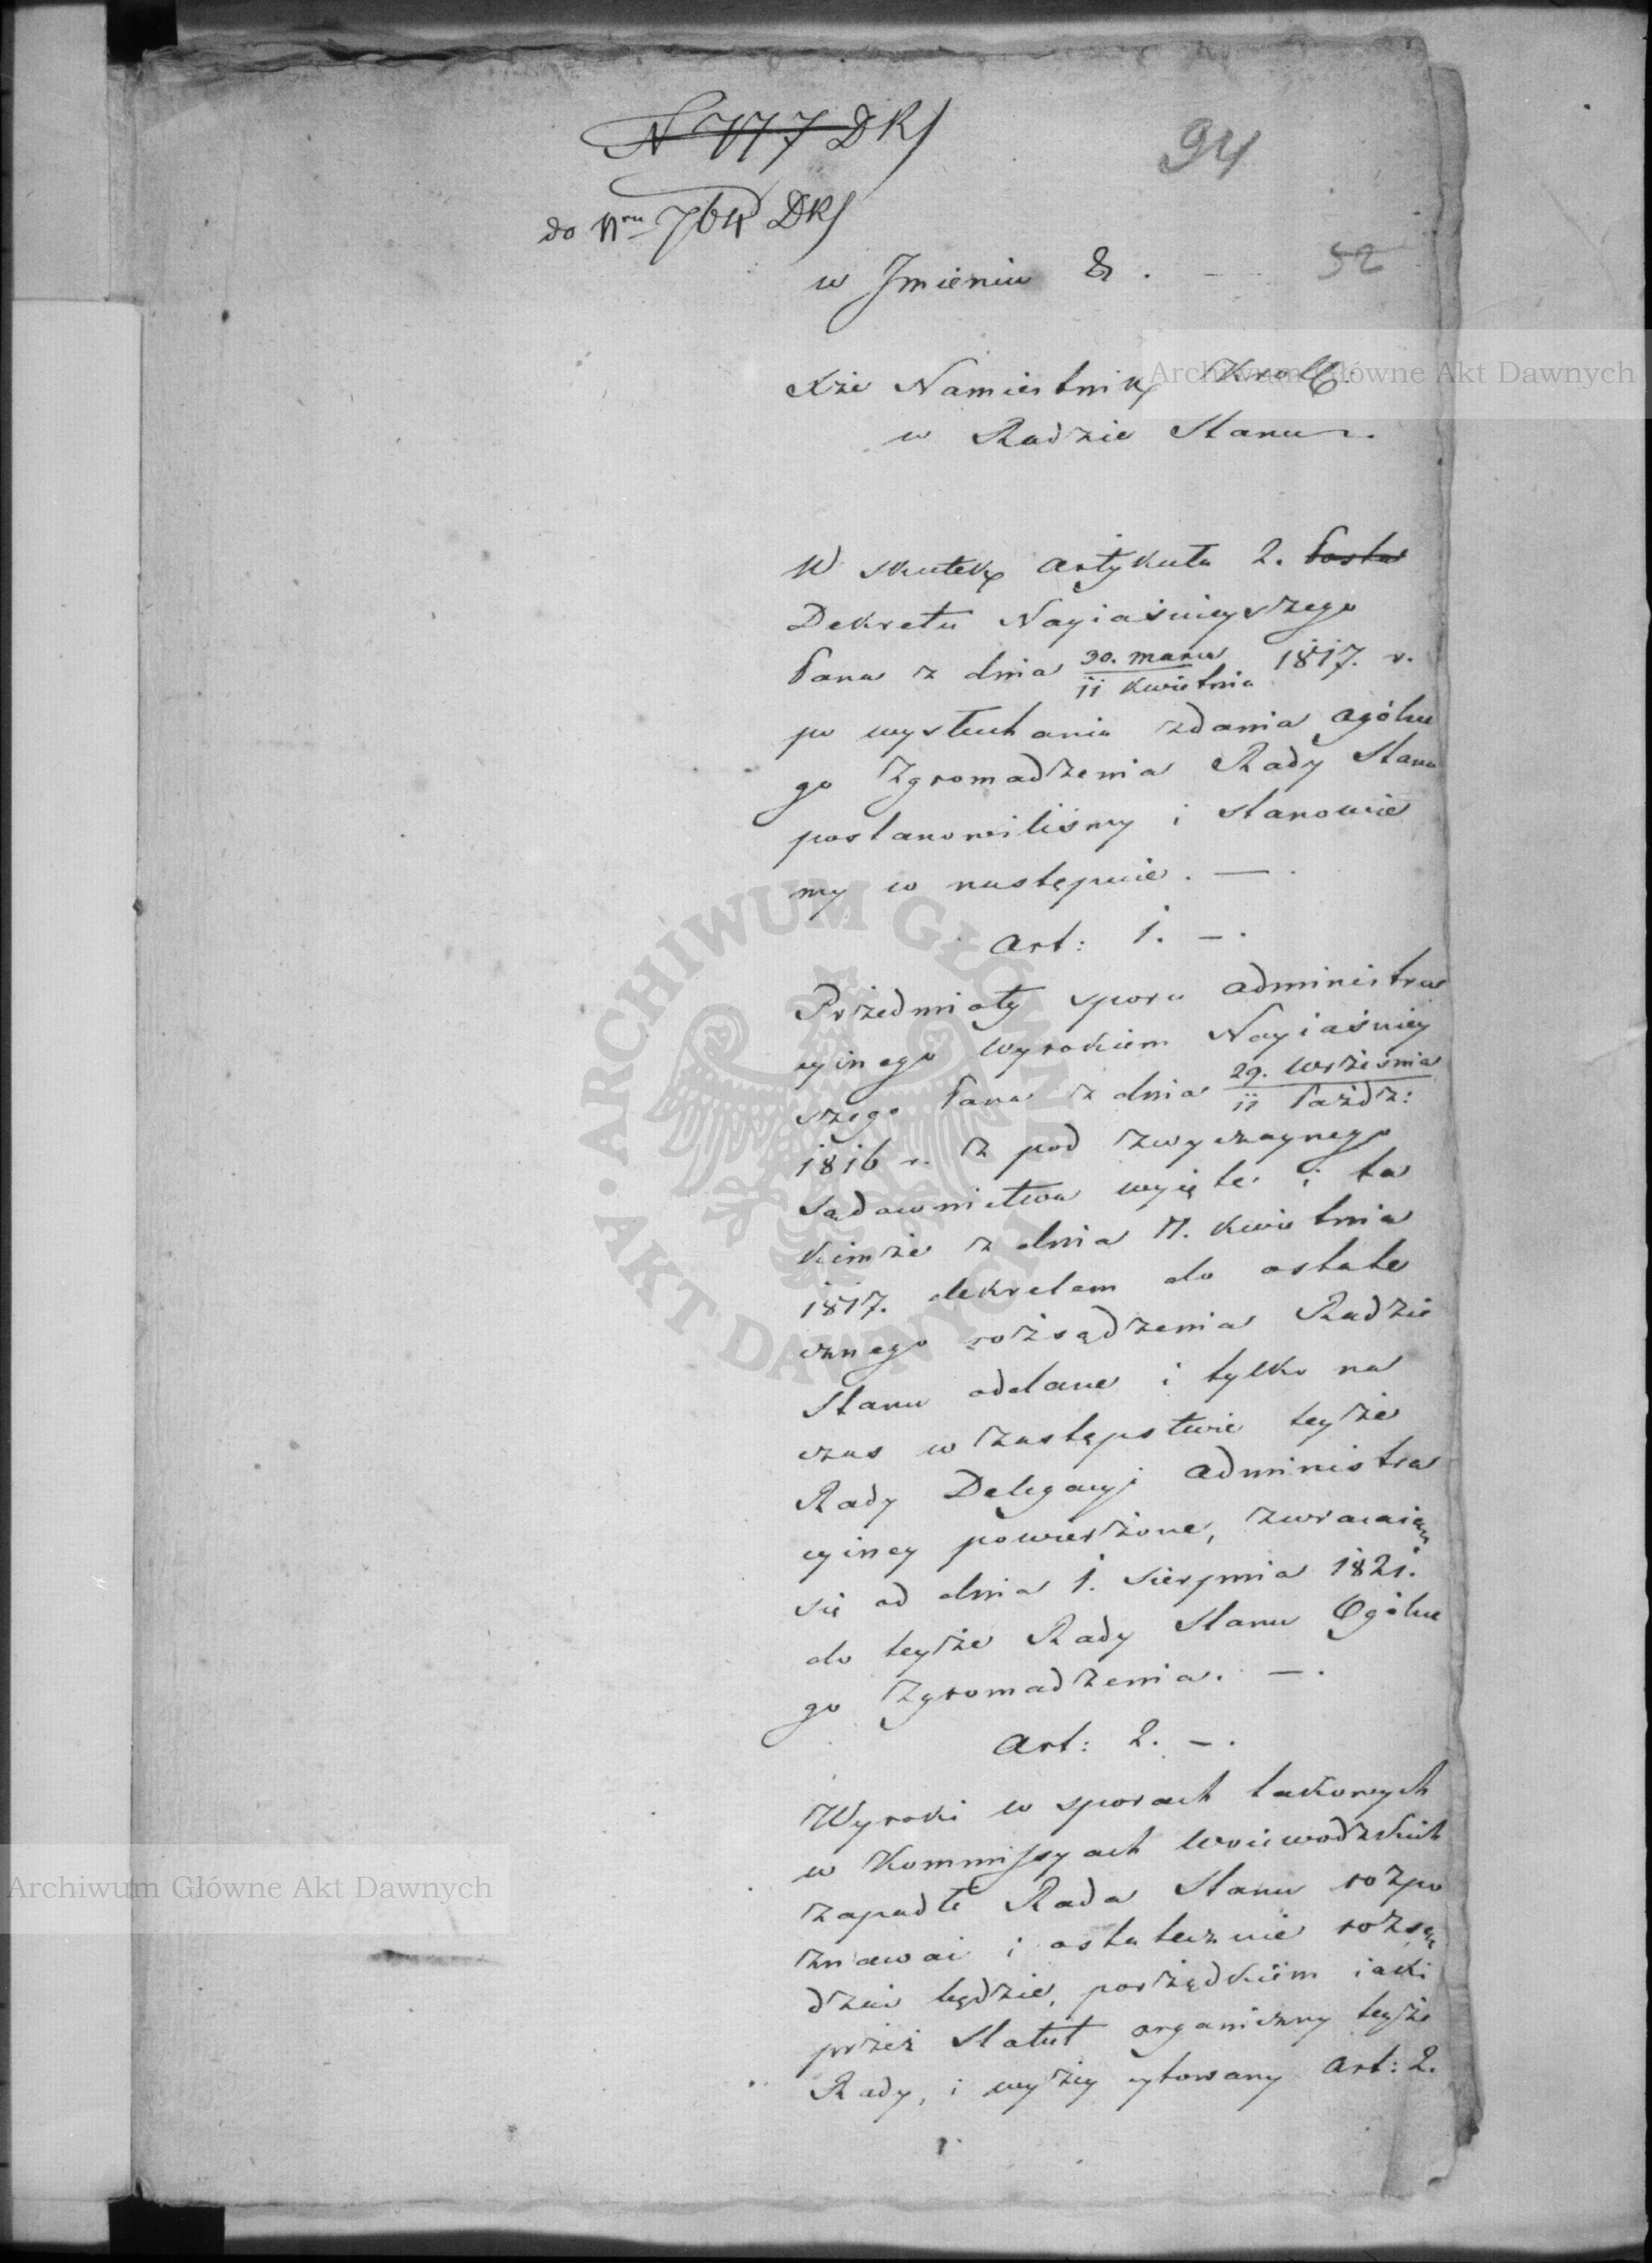 N 717 DRS
94
do Nru 764 DRS
w Jmieniu &. –
52
Xże Namiestnik Krolle.
w Radzie Stanu.
W skutek artykułu 2. Posta
Dekretu Nayiaśnieyszego
Pana z dnia 30. marca / 11 kwietnia 1817. r.
po wysłuchaniu zdania Ogólne
go Zgromadzenia Rady Stanu
postanowiliśmy i stanowie
my w następuie. —.
Art: 1. –.
Przedmioty sporu administra
cyinego wyrokiem Nayiaśniey
szego Pana z dnia 29. Września / 11 Paźdz:
1816 r. z pod zwyczaynego
Sądownictwa wyięte i ta
kimże z dnia 11. kwietnia
1817. dekretem do ostate
cznego rozsądzenia Radzie
Stanu oddane i tylko na
czas w zastępstwie teyże
Rady Delegacyi administra
cyiney powierzone, zwracaią
się od dnia 1. Sierpnia 1821.
do teyże Rady Stanu Ogólne
go Zgromadzenia. —.
Art: 2. –.
Wyroki w sporach takowych
w Kommissyach Woiewodzkich
zapadłe Rada Stanu rozpo
znawai i ostatecznie rozsą
dzai będzie, porządkiem iaki
przez Statut organiczny teyże
Rady, i wyżey cytowany Art: 2.
Archiwum Główne Akt Dawnych
ARCHIWUM GŁÓWNE AKT DAWNYCH
Archiwum Główne Akt Dawnych